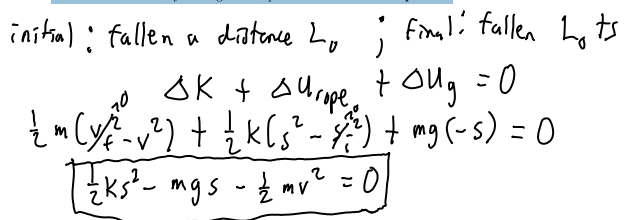 initial: fallen a distance L₀ ; final: fallen L₀ + s
ΔK + ΔU_rope + ΔU_g = 0
½ m(v_f² - v²) + ½ k(s² - s_i²) + mg(-s) = 0
½ks² - mgs - ½ mv² = 0